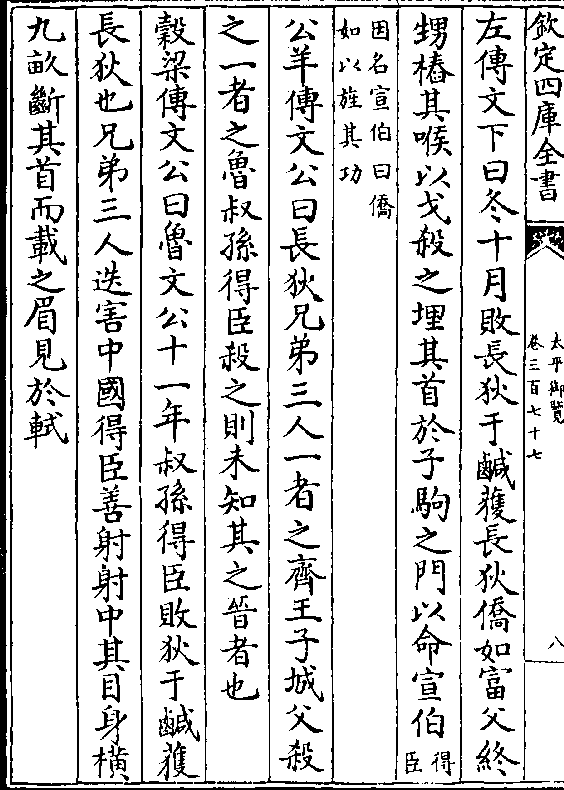 欽定四庫全書
太平御覽
卷三百七十七
八
左傳文下曰冬十月敗長狄于鹹獲長狄僑如富父終
甥樁其喉以戈殺之埋其首於子駒之門以命宣伯得臣
因名宣伯曰僑
如以旌其功
公羊傳文公曰長狄兄弟三人一者之齊王子城父殺
之一者之魯叔孫得臣殺之則未知其之晉者也
穀梁傳文公曰魯文公十一年叔孫得臣敗狄于鹹獲
長狄也兄弟三人迭害中國得臣善射射中其目身橫
九畝斷其首而載之眉見於軾